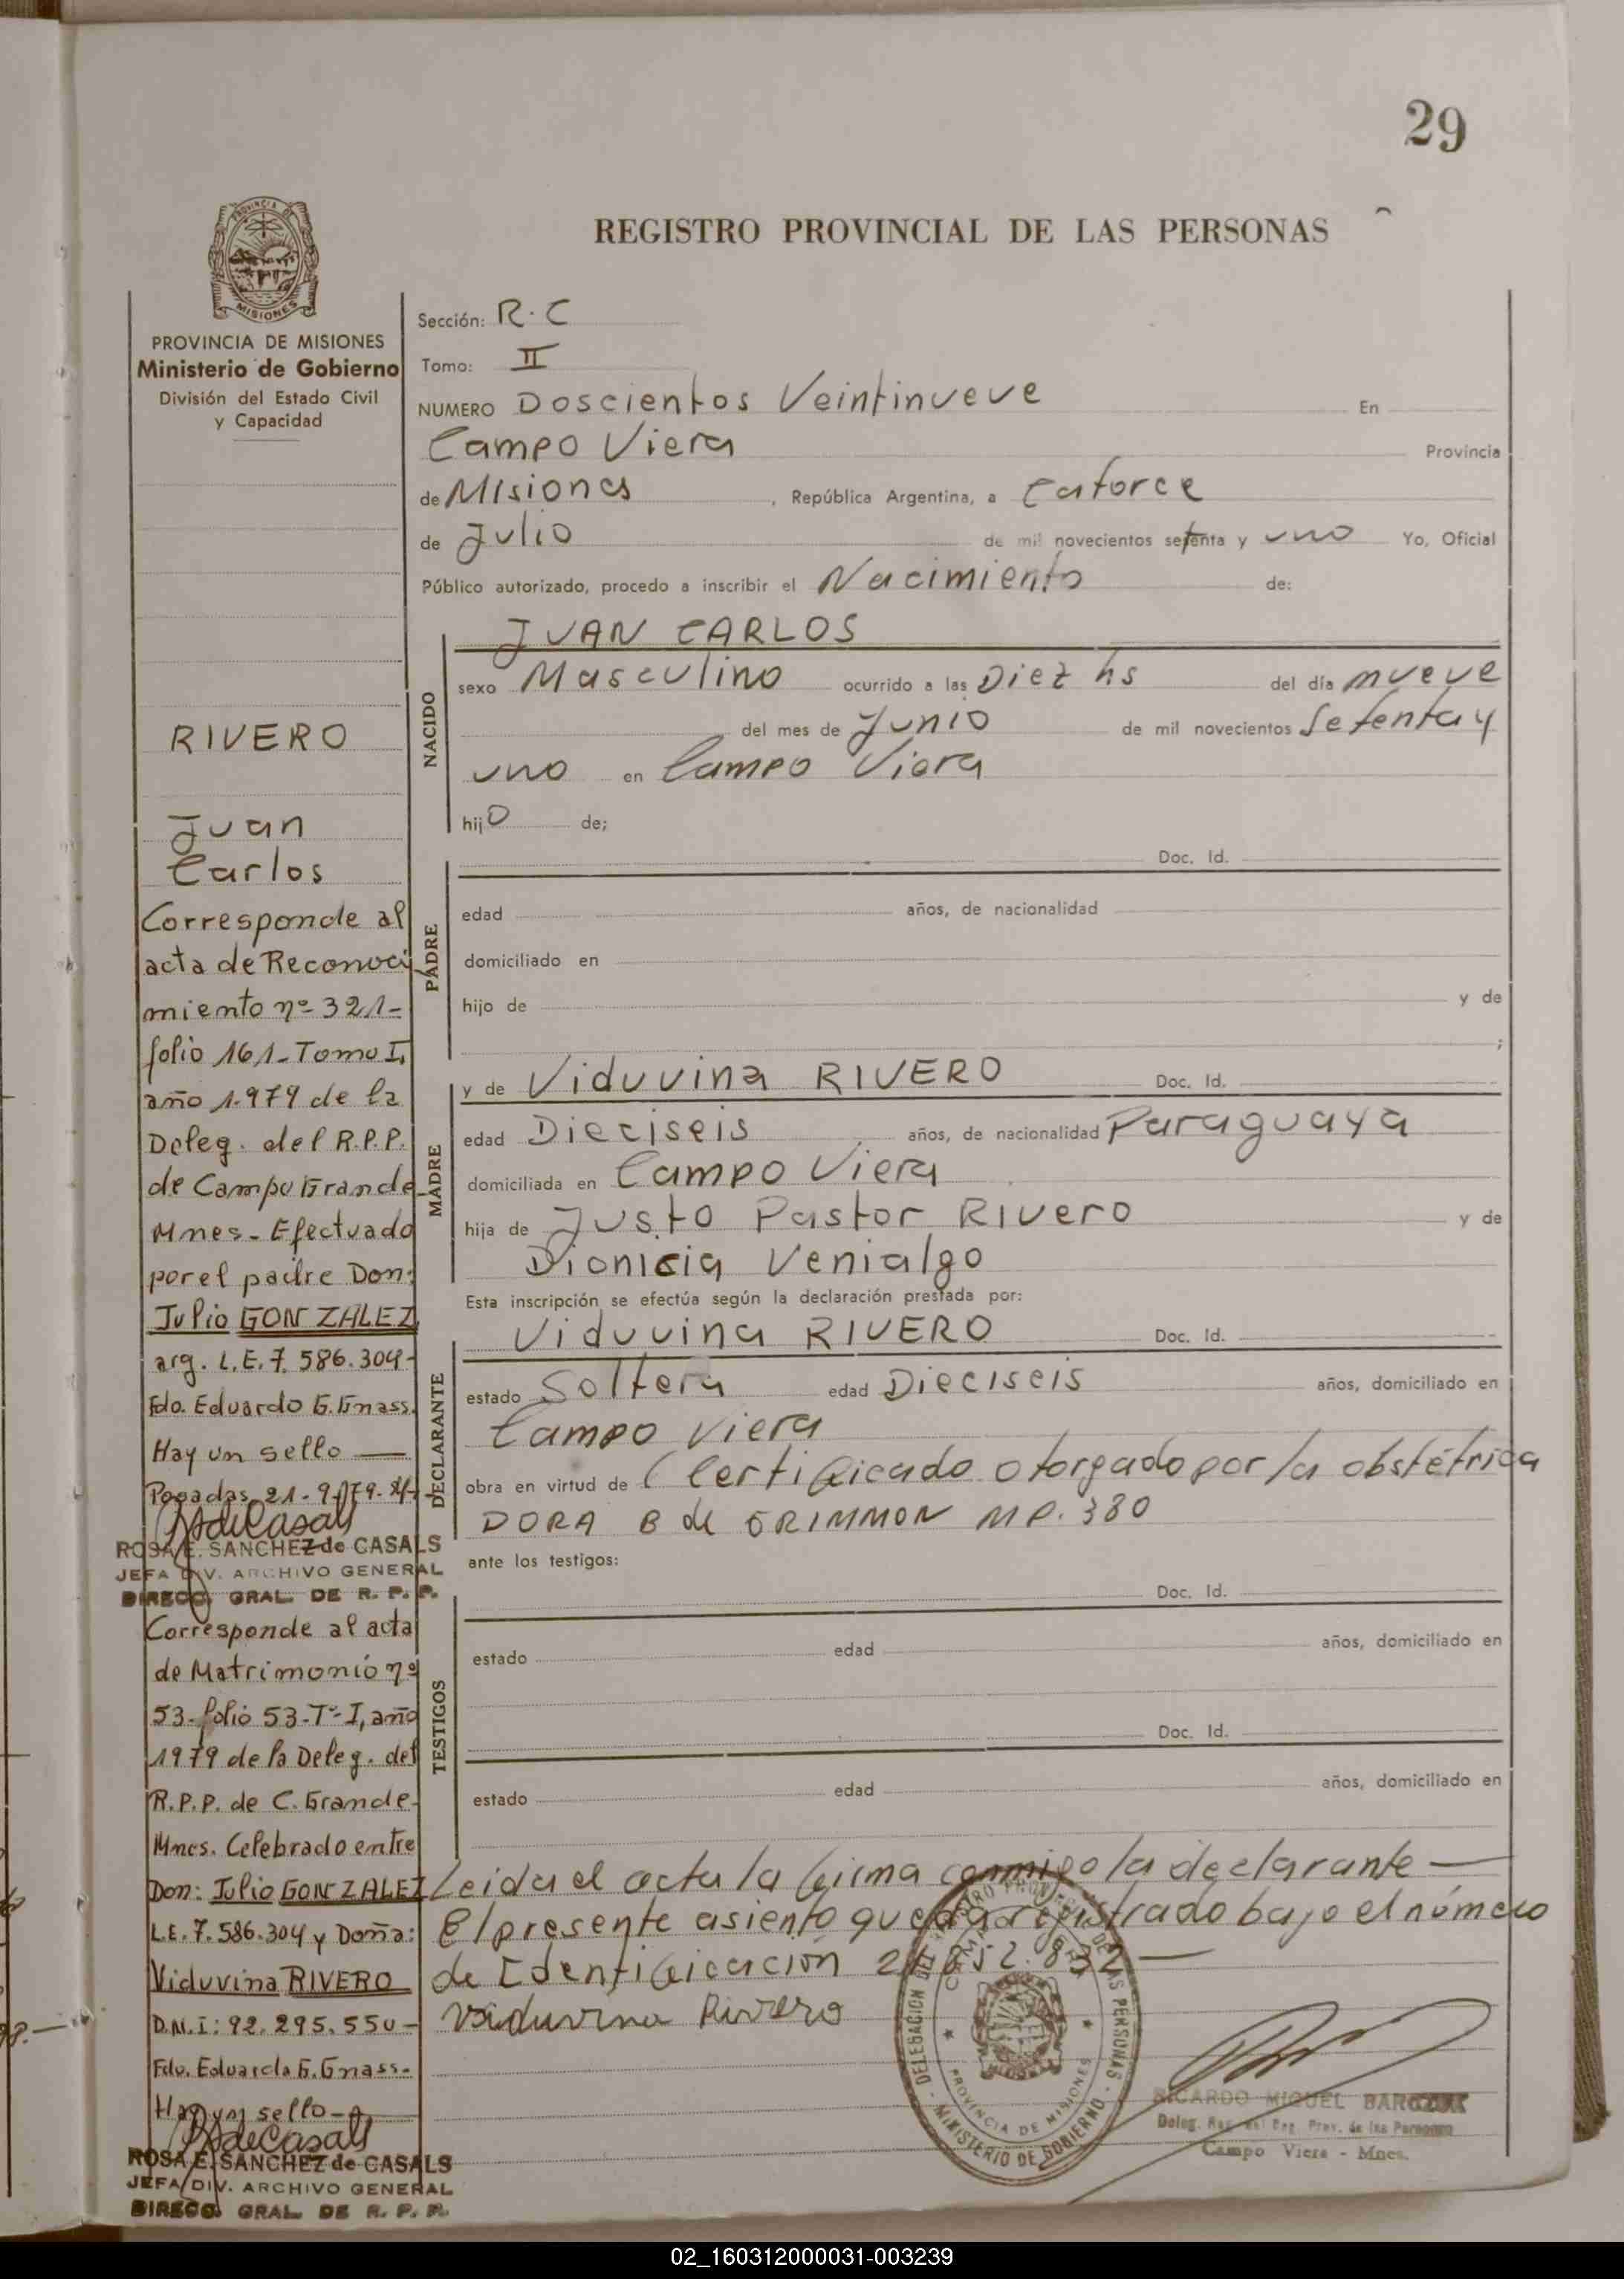 29
REGISTRO PROVINCIAL DE LAS PERSONAS
PROVINCIA DE
MISIONES
PROVINCIA DE MISIONES
Ministerio de Gobierno
División del Estado Civil
y Capacidad
RIVERO
Juan
Carlos
Corresponde al
acta de Reconoci
miento nº 321-
folio 161-Tomo I,
año 1.979 de la
Deleg. del R.P.P.
de Campo Grande
Mnes- Efectuado
por el padre Don:
Julio GONZALEZ
arg. L.E. 7.586.304-
Fdo. Eduardo G. Gnass.
Hay un sello —
Posadas, 21-9-979.
ROSA E. SANCHEZ de CASALS
JEFA DIV. ARCHIVO GENERAL
DIRECC. GRAL. DE R. P. P.
Corresponde al acta
de Matrimonio nº
53-folio 53-Tº-I, año
1979 de la Deleg. del
R.P.P. de C. Grande-
Mnes. Celebrado entre
Don: Julio GONZALEZ
L.E. 7.586.304 y Doña:
Viduvina RIVERO
D.N.I: 92.295.550-
Fdo. Eduardo G. Gnass-
Hay un sello-
ROSA E. SANCHEZ de CASALS
JEFA DIV. ARCHIVO GENERAL
DIRECC. GRAL. DE R. P. P.
Sección: R.C
Tomo: II
NUMERO Doscientos Veintinueve En
Campo Viera Provincia
de Misiones , República Argentina, a Catorce
de Julio de mil novecientos setenta y uno Yo, Oficial
Público autorizado, procedo a inscribir el Nacimiento de:
NACIDO
JUAN CARLOS
sexo Masculino ocurrido a las Diez hs del día nueve
del mes de Junio de mil novecientos Setenta y
uno en Campo Viera
hijo de;
PADRE
Doc. Id.
edad años, de nacionalidad
domiciliado en
hijo de y de
;
MADRE
y de Viduvina RIVERO Doc. Id.
edad Dieciseis años, de nacionalidad Paraguaya
domiciliada en Campo Viera
hija de Justo Pastor Rivero y de
Dionicia Venialgo
Esta inscripción se efectúa según la declaración prestada por:
DECLARANTE
Viduvina RIVERO Doc. Id.
estado Soltera edad Dieciseis años, domiciliado en
Campo Viera
obra en virtud de Certificado otorgado por la obstétrica
DORA B de GRIMMON MP. 380
ante los testigos:
TESTIGOS
Doc. Id.
estado edad años, domiciliado en
Doc. Id.
estado edad años, domiciliado en
Leida el acta la firma conmigo la declarante —
El presente asiento queda registrado bajo el número
de Identificación 832 —
Viduvina Rivero
DELEGACION DEL REGISTRO PROVINCIAL DE LAS PERSONAS
PROVINCIA DE MISIONES
MINISTERIO DE GOBIERNO
RICARDO MIGUEL
Campo Viera - Mnes.
02_160312000031-003239